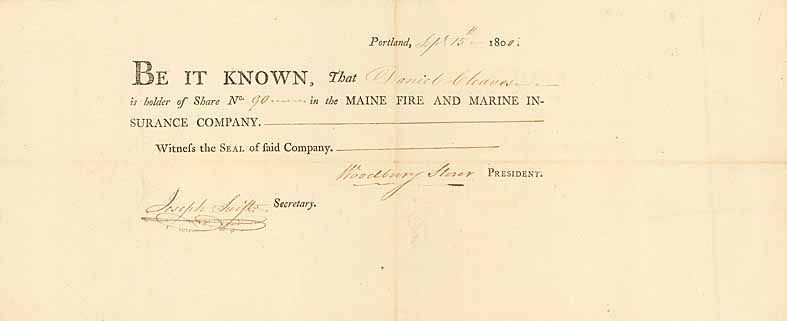 Portland, Sept. 15th 1800.
BE IT KNOWN, That Daniel Cleaves
is holder of Share No. 90 in the MAINE FIRE AND MARINE IN-
SURANCE COMPANY.
Witneſs the SEAL of ſaid Company.
Woodbury Storer PRESIDENT.
Joseph Swift Secretary.